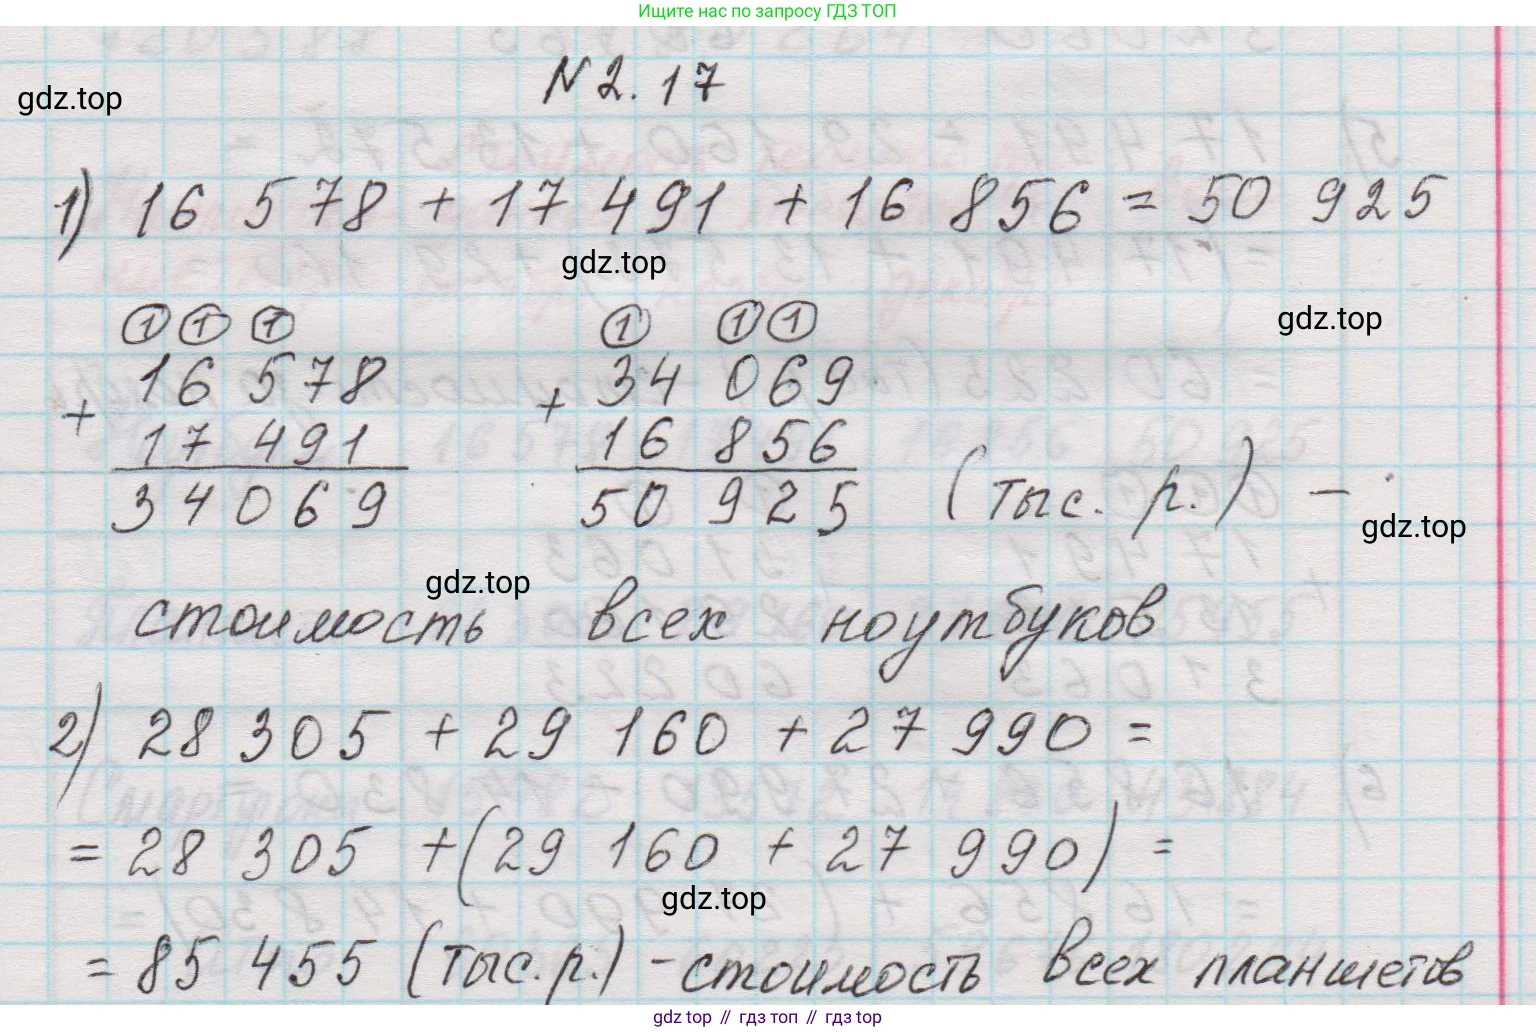 Ищите нас по запросу ГДЗ ТОП
N 2.17
gdz.top
1) 16 578 + 17 491 + 16 856 = 50 925
gdz.top
gdz.top
1 1 1
16 578
+
17 491
34 069
1 1 1
34 069
+
16 856
50 925 (тыс. р.) –
gdz.top
gdz.top
стоимость всех ноутбуков
2) 28 305 + 29 160 + 27 990 =
= 28 305 + (29 160 + 27 990) =
gdz.top
= 85 455 (тыс. р.) – стоимость всех планшетов
gdz top // гдз топ // гдз top